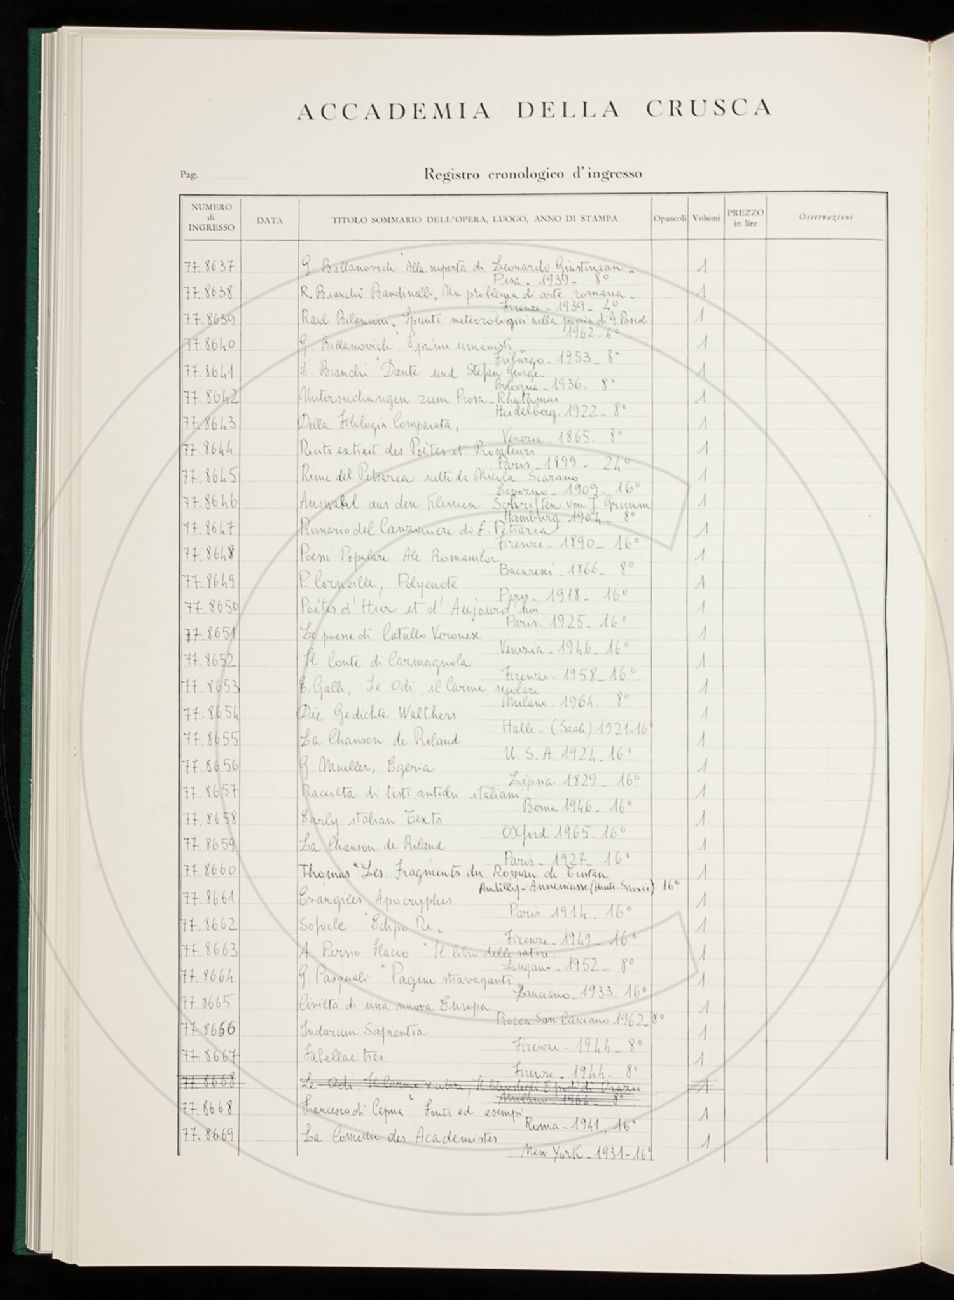 ACCADEMIA DELLA CRUSCA
Pag. Registro cronologico d'ingresso
NUMERO di INGRESSO DATA TITOLO SOMMARIO DELL'OPERA, LUOGO, ANNO DI STAMPA Opuscoli Volumi PREZZO in lire Osservazioni
77.8637 G. Billanovich "Alla scoperta di Leonardo Giustinian" 1
Pisa - 1939 - 8°
77.8638 R. Bianchi Bandinelli, Un problema di arte romana - 1
Firenze - 1939 - 4°
77.8639 Raul Bilancini, Spunti meteorologici nella poesia di G. Pascol 1
1962 - 4°
77.8640 G. Billanovich "I primi umanisti" 1
Friburgo - 1953 - 8°
77.8641 L. Bianchi "Dante und Stefan George 1
Bologna - 1936 - 8°
77.8642 Untersuchungen zum Prosa-Rhythmus 1
Heidelberg - 1922 - 8°
77.8643 Della Filologia Comparata, 1
Venezia - 1865 - 8°
77.8644 Recits extrait des Poètes et Prosateurs 1
Paris - 1899 - 24°
77.8645 Rime del Petrarca scelte da Nicola Scarano 1
Livorno - 1909 - 16°
77.8646 Auswahl aus den Kleinen Schriften von J. Grimm 1
Hamburg 1904 - 8°
77.8647 Rimario del Canzoniere di F. Petrarca 1
Firenze - 1890 - 16°
77.8648 Poesii Populare Ale Romanilor 1
Bucaresci - 1866 - 8°
77.8649 P. Corneille, Polyeucte 1
Paris - 1918 - 16°
77.8650 Poètes d'Hier et d'Aujourd'hui 1
Paris - 1925 - 16°
77.8651 Le poesie di Catullo Veronese 1
Venezia - 1946 - 16°
77.8652 Il Conte di Carmagnola 1
Firenze - 1958 - 16°
77.8653 E. Galli, Le Odi, il Carme secolare 1
Milano - 1964 - 8°
77.8654 Die Gedichte Walthers 1
Halle - (Saale) 1921 - 16°
77.8655 La Chanson de Roland 1
U.S.A. 1924 - 16°
77.8656 G. Mueller, Egeria 1
Lipsia 1829 - 16°
77.8657 Raccolta di testi antichi italiani 1
Berne 1946 - 16°
77.8658 Early italian Texts 1
Oxford 1965 - 16°
77.8659 La Chanson de Roland 1
Paris - 1927 - 16°
77.8660 Thomas "Les Fragments du Roman de Tristan 1
Ambilly-Annemasse (Haute-Savoie) 16°
77.8661 Evangiles Apocryphes 1
Paris 1914 - 16°
77.8662 Sofocle "Edipo Re" 1
Firenze - 1949 - 16°
77.8663 A. Persio Flacco "Il libro delle satire 1
Lugano - 1952 - 8°
77.8664 G. Pasquali "Pagine stravaganti 1
Lanciano - 1933 - 16°
77.8665 Civiltà di una nuova Europa 1
Rocca San Casciano 1962 - 8°
77.8666 Indorum Sapientia 1
Firenze - 1946 - 8°
77.8667 Fabellae tres 1
Firenze - 1944 - 8°
77.8668 Le Odi, Il Carme secolare, Il libro degli Epodi di Orazio 1
Milano - 1964 - 8°
77.8668 Francesco di Cipna "Fonti ed esempi 1
Roma - 1941 - 16°
77.8669 La Comedie des Academistes 1
New York - 1931 - 16°